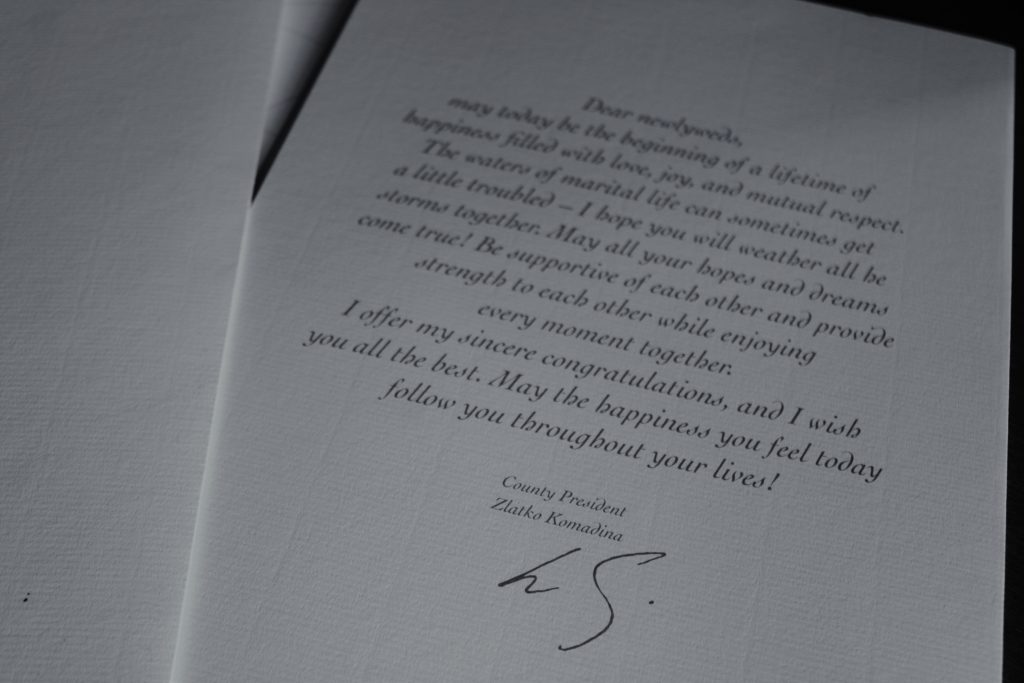 Dear newlyweds,
may today be the beginning of a lifetime of
happiness filled with love, joy, and mutual respect.
The waters of marital life can sometimes get
a little troubled – I hope you will weather all he
storms together. May all your hopes and dreams
come true! Be supportive of each other and provide
strength to each other while enjoying
every moment together.
I offer my sincere congratulations, and I wish
you all the best. May the happiness you feel today
follow you throughout your lives!
County President
Zlatko Komadina